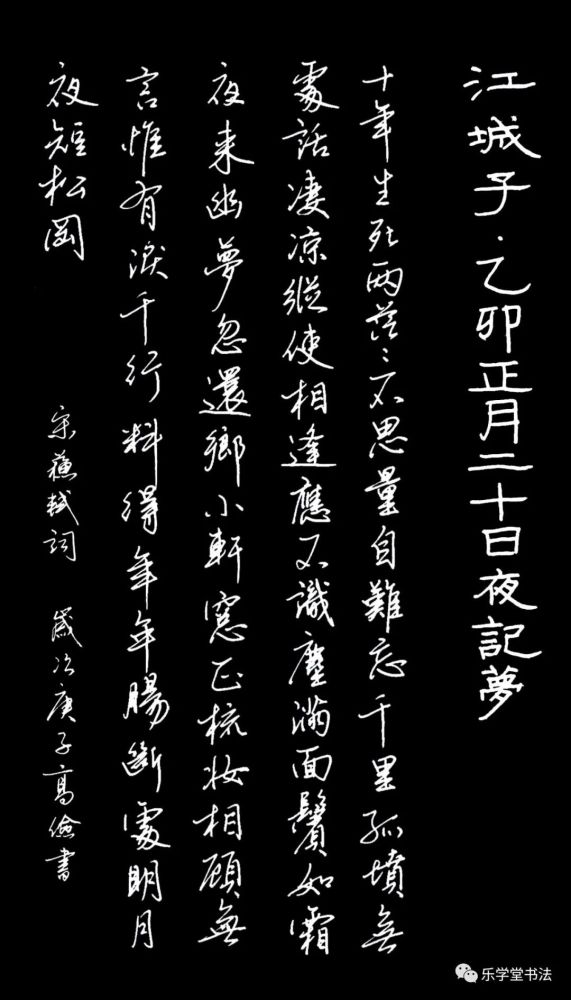 江城子·乙卯正月二十日夜記夢
十年生死兩茫〻不思量自難忘千里孤墳無
處話凄涼縱使相逢應不識塵滿面鬢如霜
夜来幽夢忽還鄉小軒窓正梳妝相顧無
言惟有淚千行料得年年腸斷處明月
夜短松岡
宋蘇軾詞 歲次庚子高儉書
乐学堂书法